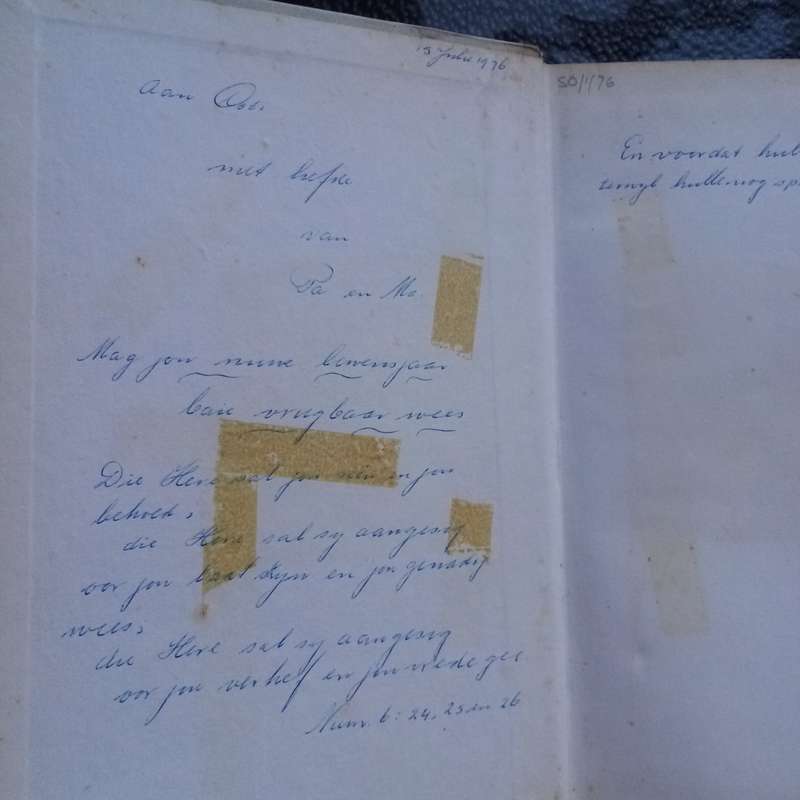 15 Julie 1976
Aan
met liefde
van
Pa en Ma.
Mag jou nuwe lewensjaar
baie vrugbaar wees
Die Here sal jou seën en jou
behoed,
die Here sal sy aangesig
oor jou laat skyn en jou genadig
wees,
die Here sal sy aangesig
oor jou verhef en jou vrede gee
Num. 6: 24, 25 en 26
SO/1/76
En voordat hul
terwyl hulle nog sp